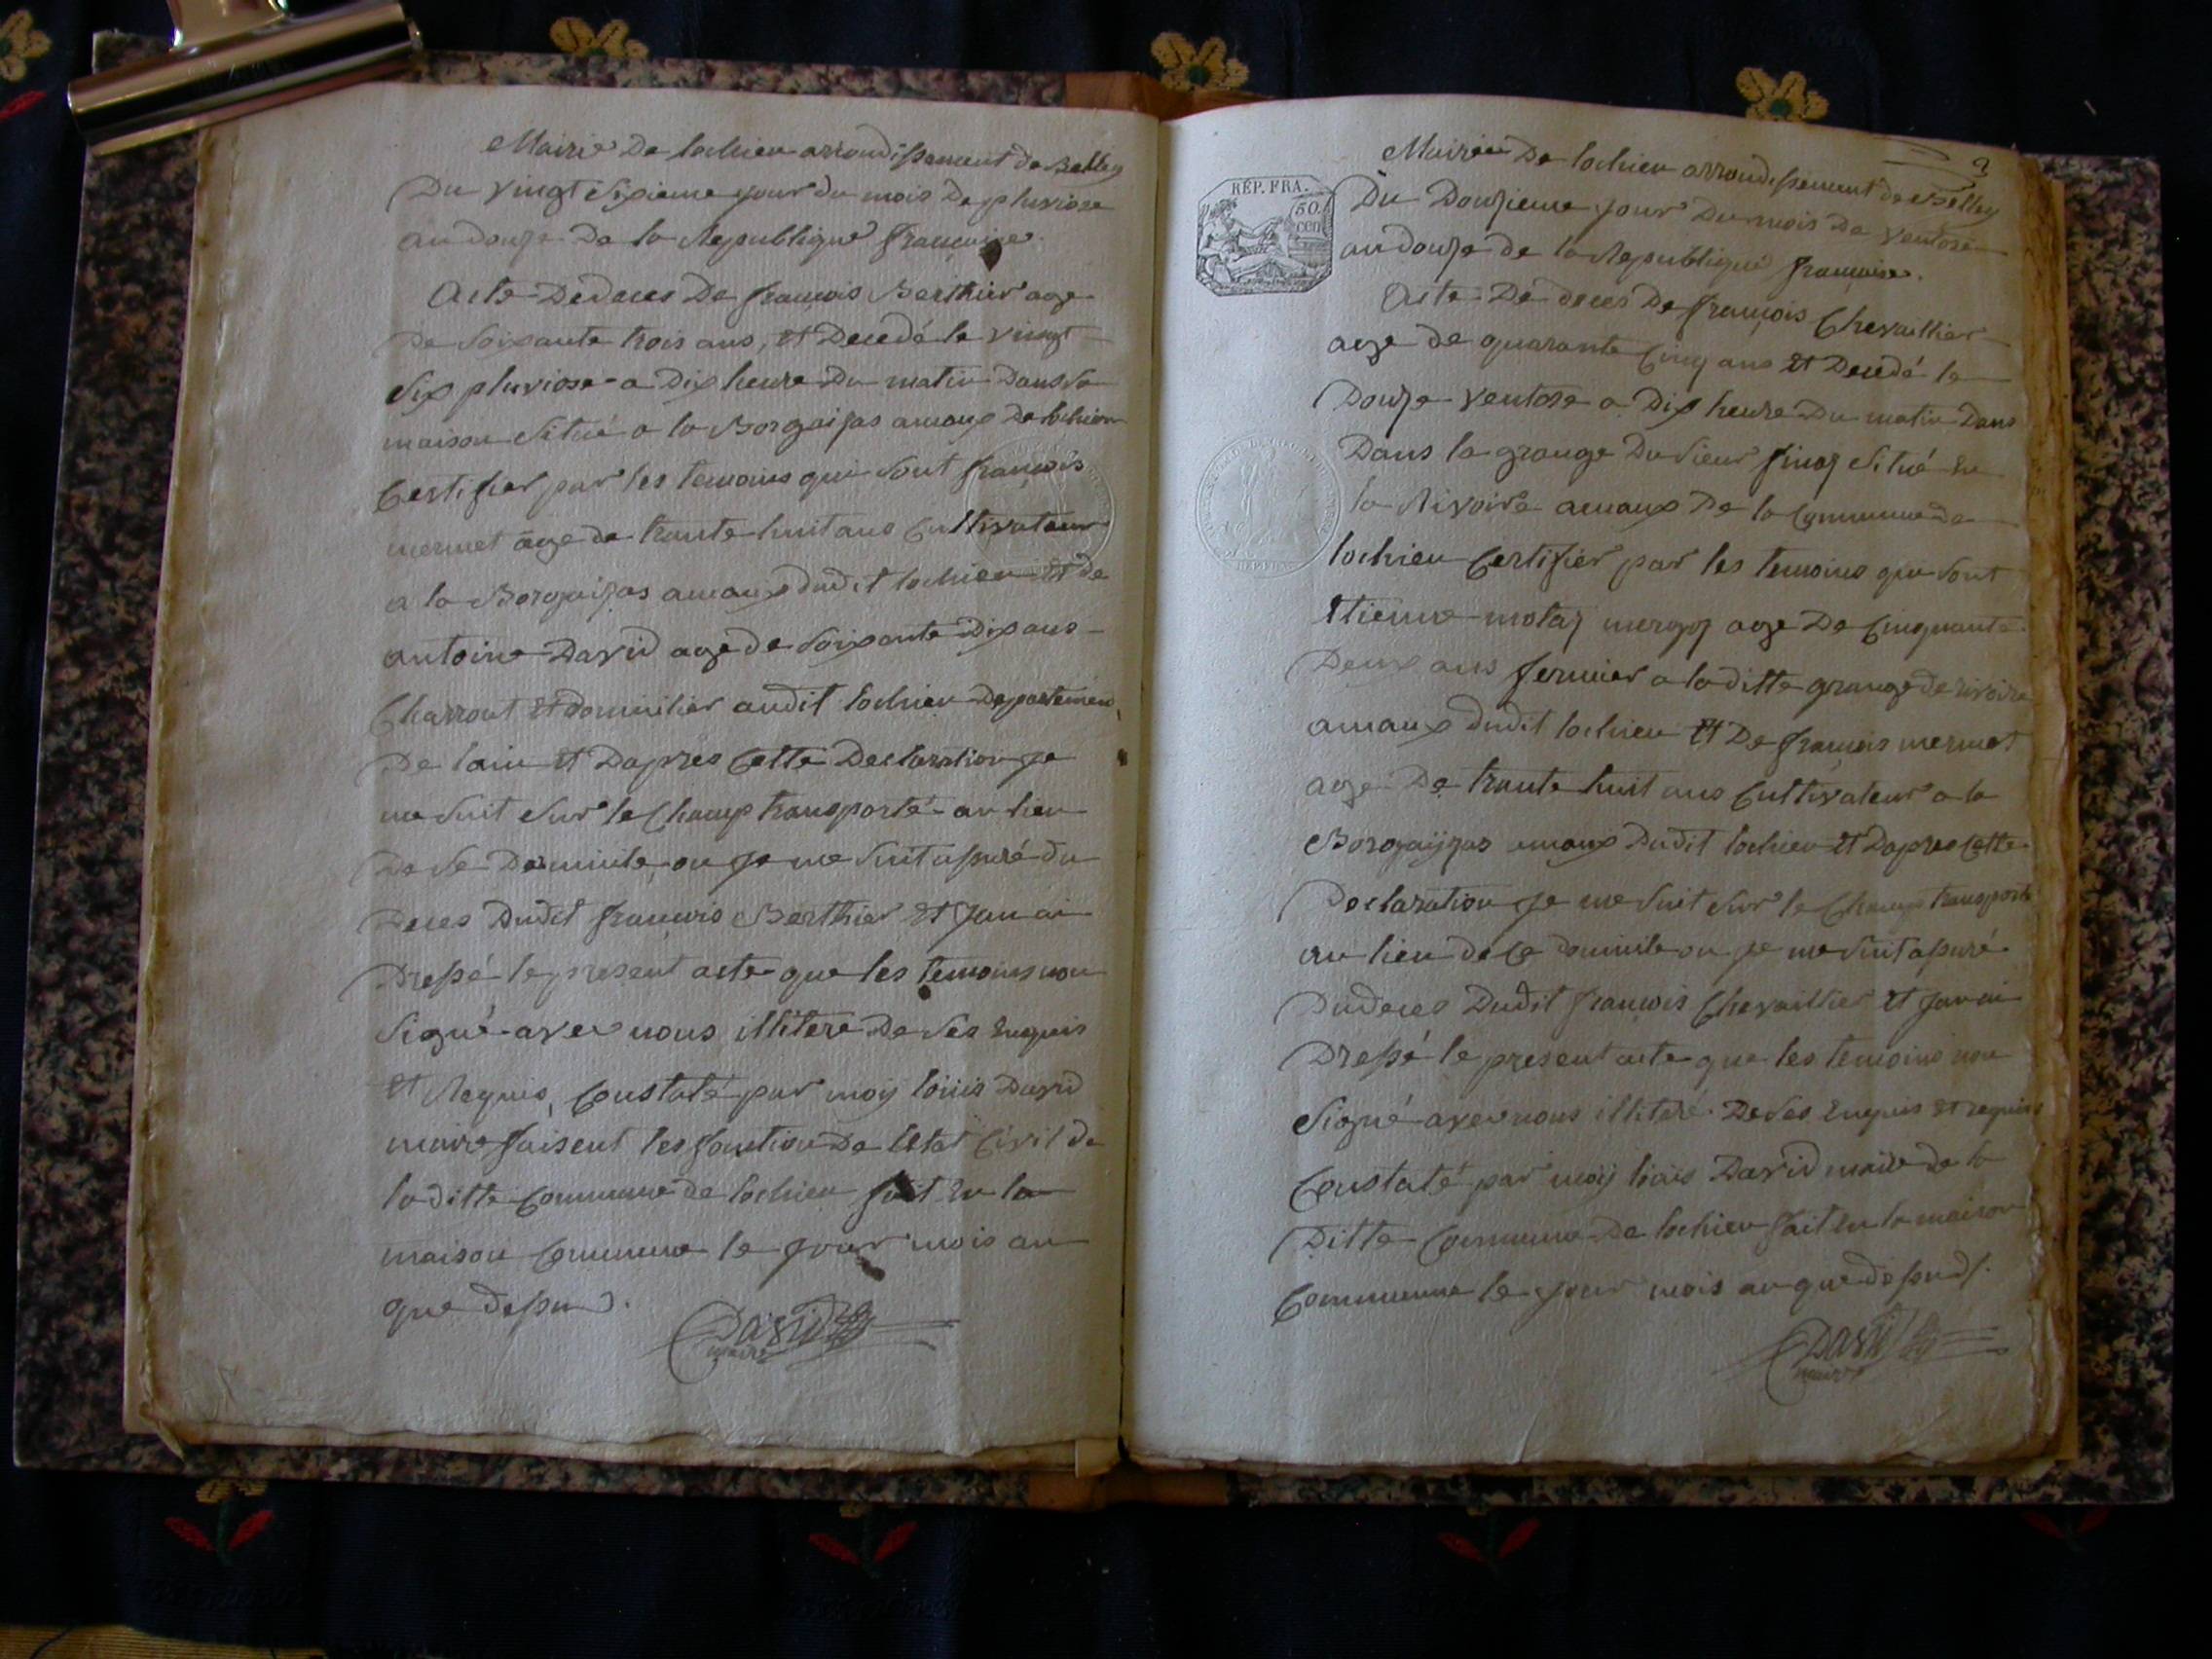 Mairie De lochieu arrondissement de Belley
Du vingt sixieme jour du mois de pluviose
an douze De la Republique francaise.
Acte De deces De françois Berthier age
De soixante trois ans, et Decedé le vingt
six pluviose a Dix heure Du matin Dans sa
maison situé a la Borgaizas amaux De lochieu
Certifier par les temoins qui sont françois
mermet age de trante huit ans Cultivateur
a la Borgaizas amaux dudit lochieu et de
antoine David age de soixante Dix ans
Charront et domicilier audit lochieu Departemen
De lain et Dapres Cette Declaration je
me suit sur le Champ transporté au lieu
De se Domicile, ou je me suit assuré du
Deces Dudit françois Berthier et Jan ai
Dressé le present acte que les temoins non
signé avec nous illitere De ses Enquis
et Requis, Constaté par moy louis David
maire faisent les fontion De letat Civil de
la ditte Commune de lochieu fait En la
maison Commune le jour mois an
que dessus.
David
maire
3
Mairie De lochieu arrondissement de Belley
RÉP. FRA.
50.
cen
Du Douzieme jour Du mois de ventose
an douze de la Republique francaise.
Acte De deces De françois Chevaillier
age de quarante Cinq ans et Decedé le
Douze ventose a Dix heure Du matin Dans
Dans la grange Du sieur finaz situé En
la Rivoire amaux De la Commune de
lochieu Certifier par les temoins qui sont
Etienne motaz mergoz age De Cinquante
Deux ans fermier a laditte grange de rivoire
amaux dudit lochieu et De françois mermet
age De trante huit ans Cultivateur a la
Borgaizas amaux Dudit lochieu et Dapres Cette
Declaration je me suit sur le Champ transporté
au lieu de Ce domicile ou je me suit assuré
Du deces Dudit françois Chevaillier et Jan ai
Dressé le present acte que les temoins non
signé avec nous illiteré De ses Enquis et requis
Constaté par moy louis David maire de la
Ditte Commune De lochieu fait En la maison
Commune le jour mois an que dessus.
David
maire